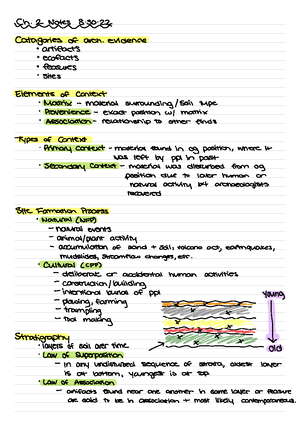 Ch. 2 Notes
Catagories of arch. evidence
• artifacts
• ecofacts
• features
• sites
Elements of Context
• Matrix - material surrounding/soil type
• Provenience - exact position w/ matrix
• Association - relationship to other finds
Types of Context
• Primary Context - material found in og position, where it
was left by ppl in past
• Secondary Context - material was disturbed from og
position due to later human or
natural activity b4 archaeologists
recovered
Site Formation Process
• Natural (NFP)
- natural events
- animal/plant activity
- accumulation of sand + soil, volcano act, earthquakes,
mudslides, streamflow changes, etc.
• Cultural (CFP)
- deliberate or accidental human activities
- construction/building
- intentional burials of ppl
- plowing, farming
- trampling
- tool making
young
old
Stratigraphy
• layers of soil over time
• Law of Superposition
- in any undisturbed sequence of strata, oldest layer
is at bottom, youngest is at top
• Law of Association
- artifacts found near one another in same layer or feature
are said to be in association + most likely contemporaneous